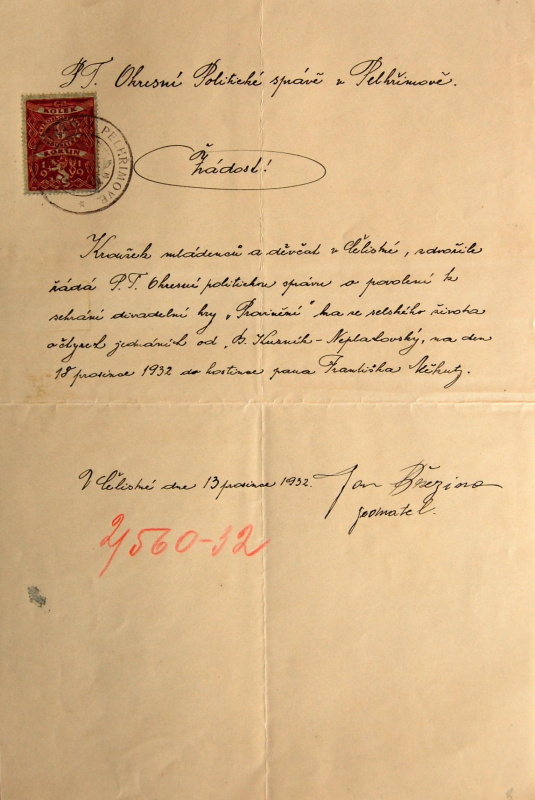 P.T. Okresní Politické správě v Pelhřimově.
KOLEK
KORUN
PELHŘIMOVĚ
Žádost!
Kroužek mládenců a děvčat v Čelistné, zdvořile
žádá P.T. Okresní politickou správu o povolení k
sehrání divadelní hry „Provinění" hra ze selského života
o čtyrech jednáních od „B. Kuzník-Neplatovský, na den
18 prosince 1932 do hostince pana Františka
V Čelistné dne 13 prosince 1932.
Jan Březina
jednatel.
2/560-32